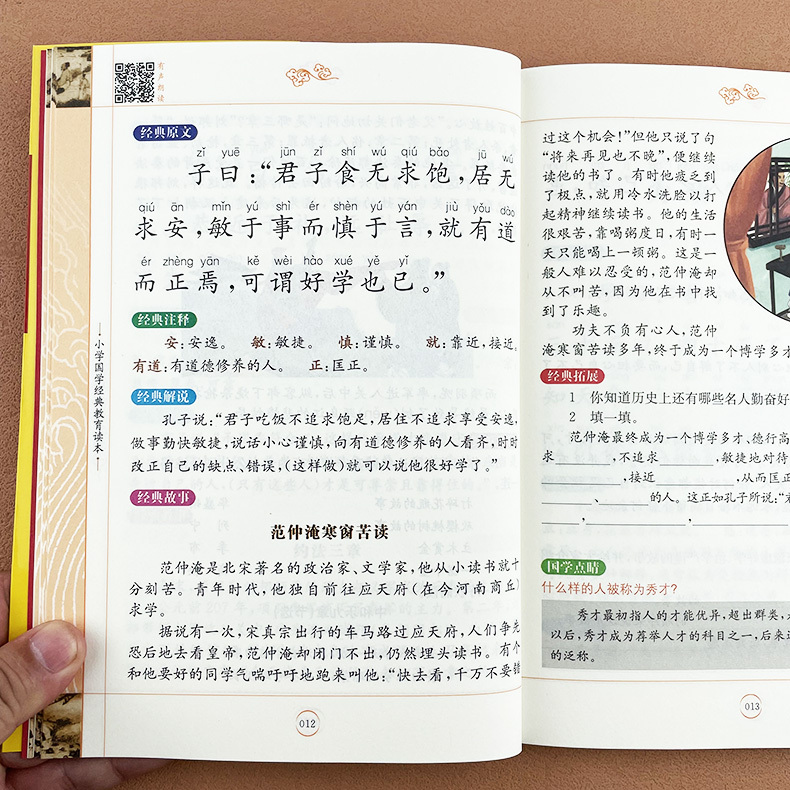 有声朗读
经典原文
zǐ yuē jūn zǐ shí wú qiú bǎo jū wú
子曰:“君子食无求饱,居无
qiú ān mǐn yú shì ér shèn yú yán jiù yǒu dào
求安,敏于事而慎于言,就有道
ér zhèng yān kě wèi hào xué yě yǐ
而正焉,可谓好学也已。”
经典注释
安:安逸。 敏:敏捷。 慎:谨慎。 就:靠近,接近。
有道:有道德修养的人。 正:匡正。
经典解说
孔子说:“君子吃饭不追求饱足,居住不追求享受安逸,
做事勤快敏捷,说话小心谨慎,向有道德修养的人看齐,时时
改正自己的缺点、错误,(这样做)就可以说他很好学了。”
经典故事
范仲淹寒窗苦读
范仲淹是北宋著名的政治家、文学家,他从小读书就十
分刻苦。青年时代,他独自前往应天府(在今河南商丘)
求学。
据说有一次,宋真宗出行的车马路过应天府,人们争先
恐后地去看皇帝,范仲淹却闭门不出,仍然埋头读书。有个
和他要好的同学气喘吁吁地跑来叫他:“快去看,千万不要错
012
小学国学经典教育读本
过这个机会!”但他只说了句
“将来再见也不晚”,便继续
读他的书了。有时他疲乏到
了极点,就用冷水洗脸以打
起精神继续读书。他的生活
很艰苦,靠喝粥度日,有时一
天只能喝上一顿粥。这是一
般人难以忍受的,范仲淹却
从不叫苦,因为他在书中找
到了乐趣。
功夫不负有心人,范仲
淹寒窗苦读多年,终于成为一个博学多才
经典拓展
1 你知道历史上还有哪些名人勤奋好
2 填一填。
范仲淹最终成为一个博学多才、德行高
求________,不追求________,敏捷地对待
________,接近________,从而匡正
________、________的人。这正如孔子所说:“
________,________,________,
国学点睛
什么样的人被称为秀才?
秀才最初指人的才能优异,超出群类,
以后,秀才成为荐举人才的科目之一,后来
的泛称。
013